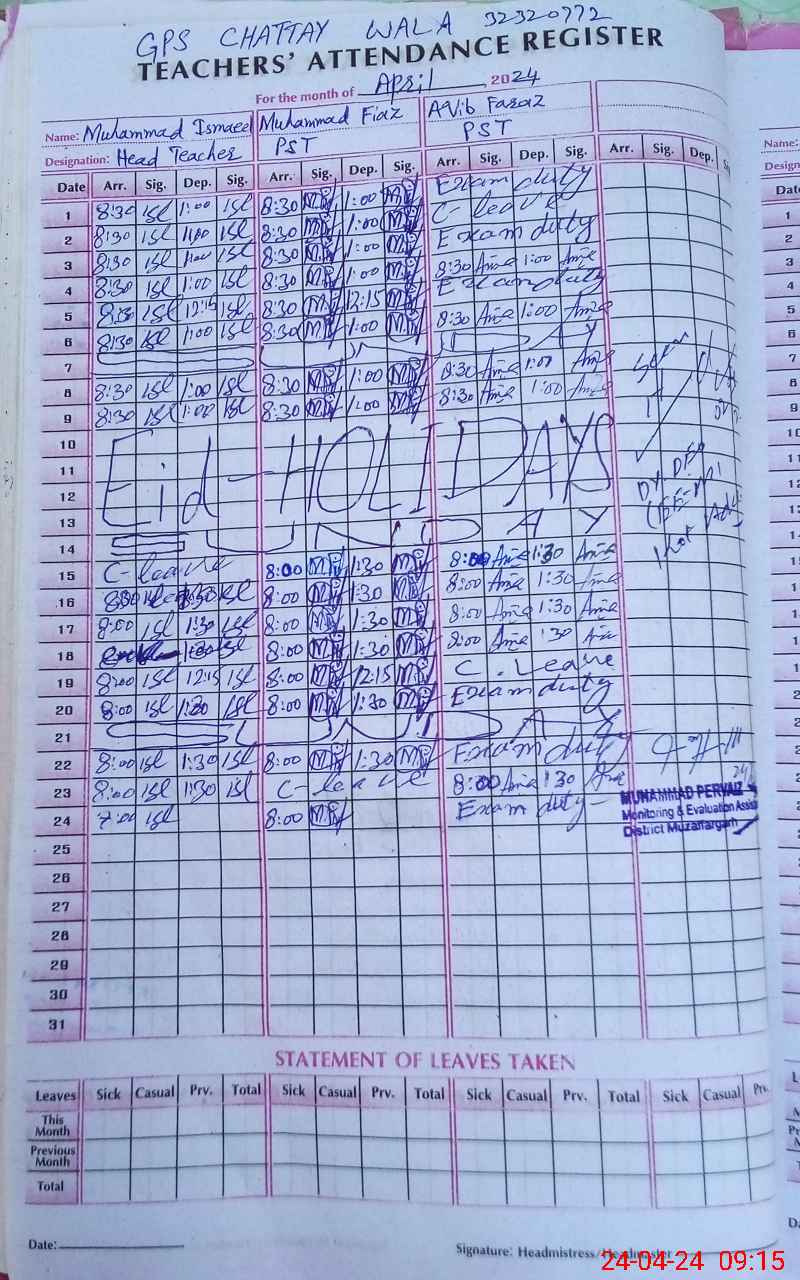 GPS CHATTAY WALA 32320772
TEACHERS' ATTENDANCE REGISTER
For the month of April 2024
Name: Muhammad Ismaeel Muhammad Fiaz A.Vib Faraz
Designation: Head Teacher PST PST
Date Arr. Sig. Dep. Sig. Arr. Sig. Dep. Sig. Arr. Sig. Dep. Sig. Arr. Sig. Dep.
1 8:30 Isl 1:00 Isl 8:30 1:00 Exam duty
2 8:30 Isl 1:00 Isl 8:30 1:00 C-leave
3 8:30 Isl 1:00 Isl 8:30 1:00 Exam duty
4 8:30 Isl 1:00 Isl 8:30 1:00 8:30 1:00
5 8:30 Isl 12:15 Isl 8:30 12:15 Exam duty
6 8:30 Isl 1:00 Isl 8:30 1:00 8:30 1:00
7 SUNDAY
8 8:30 Isl 1:00 Isl 8:30 1:00 8:30 1:00
9 8:30 Isl 1:00 Isl 8:30 1:00 8:30 1:00
10
11 Eid-HOLIDAYS
12
13
14 SUNDAY
15 C-leave 8:00 1:30 8:00 1:30
16 8:00 1:30 Isl 8:00 1:30 8:00 1:30
17 8:00 Isl 1:30 Isl 8:00 1:30 8:00 1:30
18 1:30 Isl 8:00 1:30 8:00 1:30
19 8:00 Isl 12:15 Isl 8:00 12:15 C. Leave
20 8:00 Isl 1:30 Isl 8:00 1:30 Exam duty
21 SUNDAY
22 8:00 Isl 1:30 Isl 8:00 1:30 Exam duty
23 8:00 Isl 1:30 Isl C-leave 8:00 1:30
24 7:00 Isl 8:00 Exam duty
MUHAMMAD PERVAIZ
Monitoring & Evaluation Assis
District Muzaffargarh
25
26
27
28
29
30
31
STATEMENT OF LEAVES TAKEN
Leaves Sick Casual Prv. Total Sick Casual Prv. Total Sick Casual Prv. Total Sick Casual Prv.
This Month
Previous Month
Total
Date: Signature: Headmistress/Headmaster
24-04-24 09:15